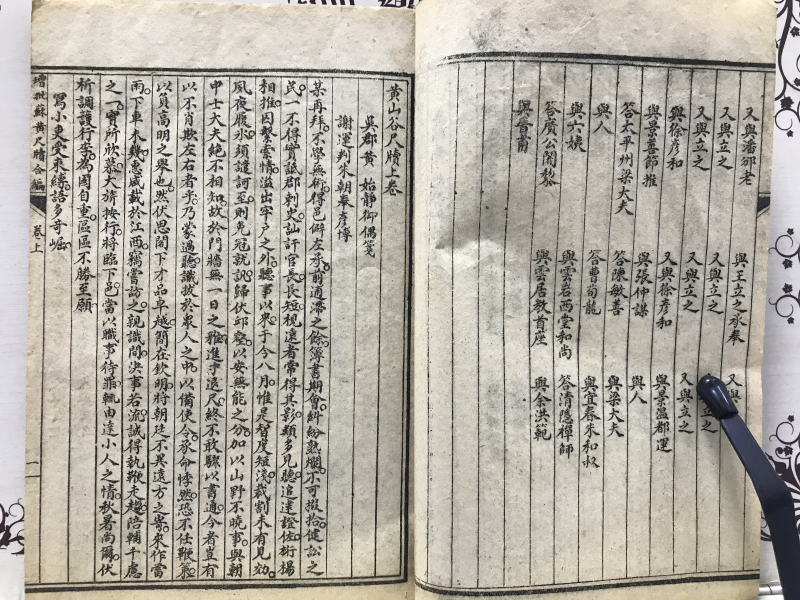 又與潘邠老
又與立之
又與立之
與徐彦和
與景善節推
答太平州梁大夫
與人
與六姨
答廣公闍黎
與晋甫
與王立之承奉
又與立之
又與立之
又與徐彦和
與張仲謀
答陳敏善
答曹荀龍
與雲岩西堂和尚
與雲居教首座
又與
立之
又與立之
與景温都運
與人
與梁大夫
與宜春朱和叔
答清隱禪師
與余洪範
黄山谷尺牘上卷
吳郡黄 始静御偶箋
謝運判朱朝奉彦博
某再拜不學無術得邑僻左承前逋滯之餘簿書期會糾紛熟爛不可掇拾健訟之
民一不得實詆郡刺史訕訐官長長短視遠者常得其影類多見聽追逮證佐術揚
相推因繫索情溢出牢户之外聽事以來于今八月惟是智度短淺裁割未有見効
夙夜履氷須譴訶至則免冠就訊歸伏邱壑以安無能之分加以山野不曉事與朝
中士大夫絶不相知故於門牆無一日之雅進寸退尺終不敢驟以書通今者豈有
以不肖欺左右者乎乃蒙過聽識拔於衆人之中以備使令承命悸然恐不任鞭箠
以負高明之舉也然伏思閤下才品卓越簡在欽明將朝廷不異遠方之寄來作當
雨下車未幾惠威載於江西竊嘗訪之親識間決事若流誠得執鞭走趨陪輔千慮
之一實所欣慕大旆按行將臨下邑當以職事待罪輒由達小人之情秋暑尚爾伏
祈調護行李為國自重區區不勝至願
寫小吏受束縛語多奇崛
增批蘇黄尺牘合編
卷上
一